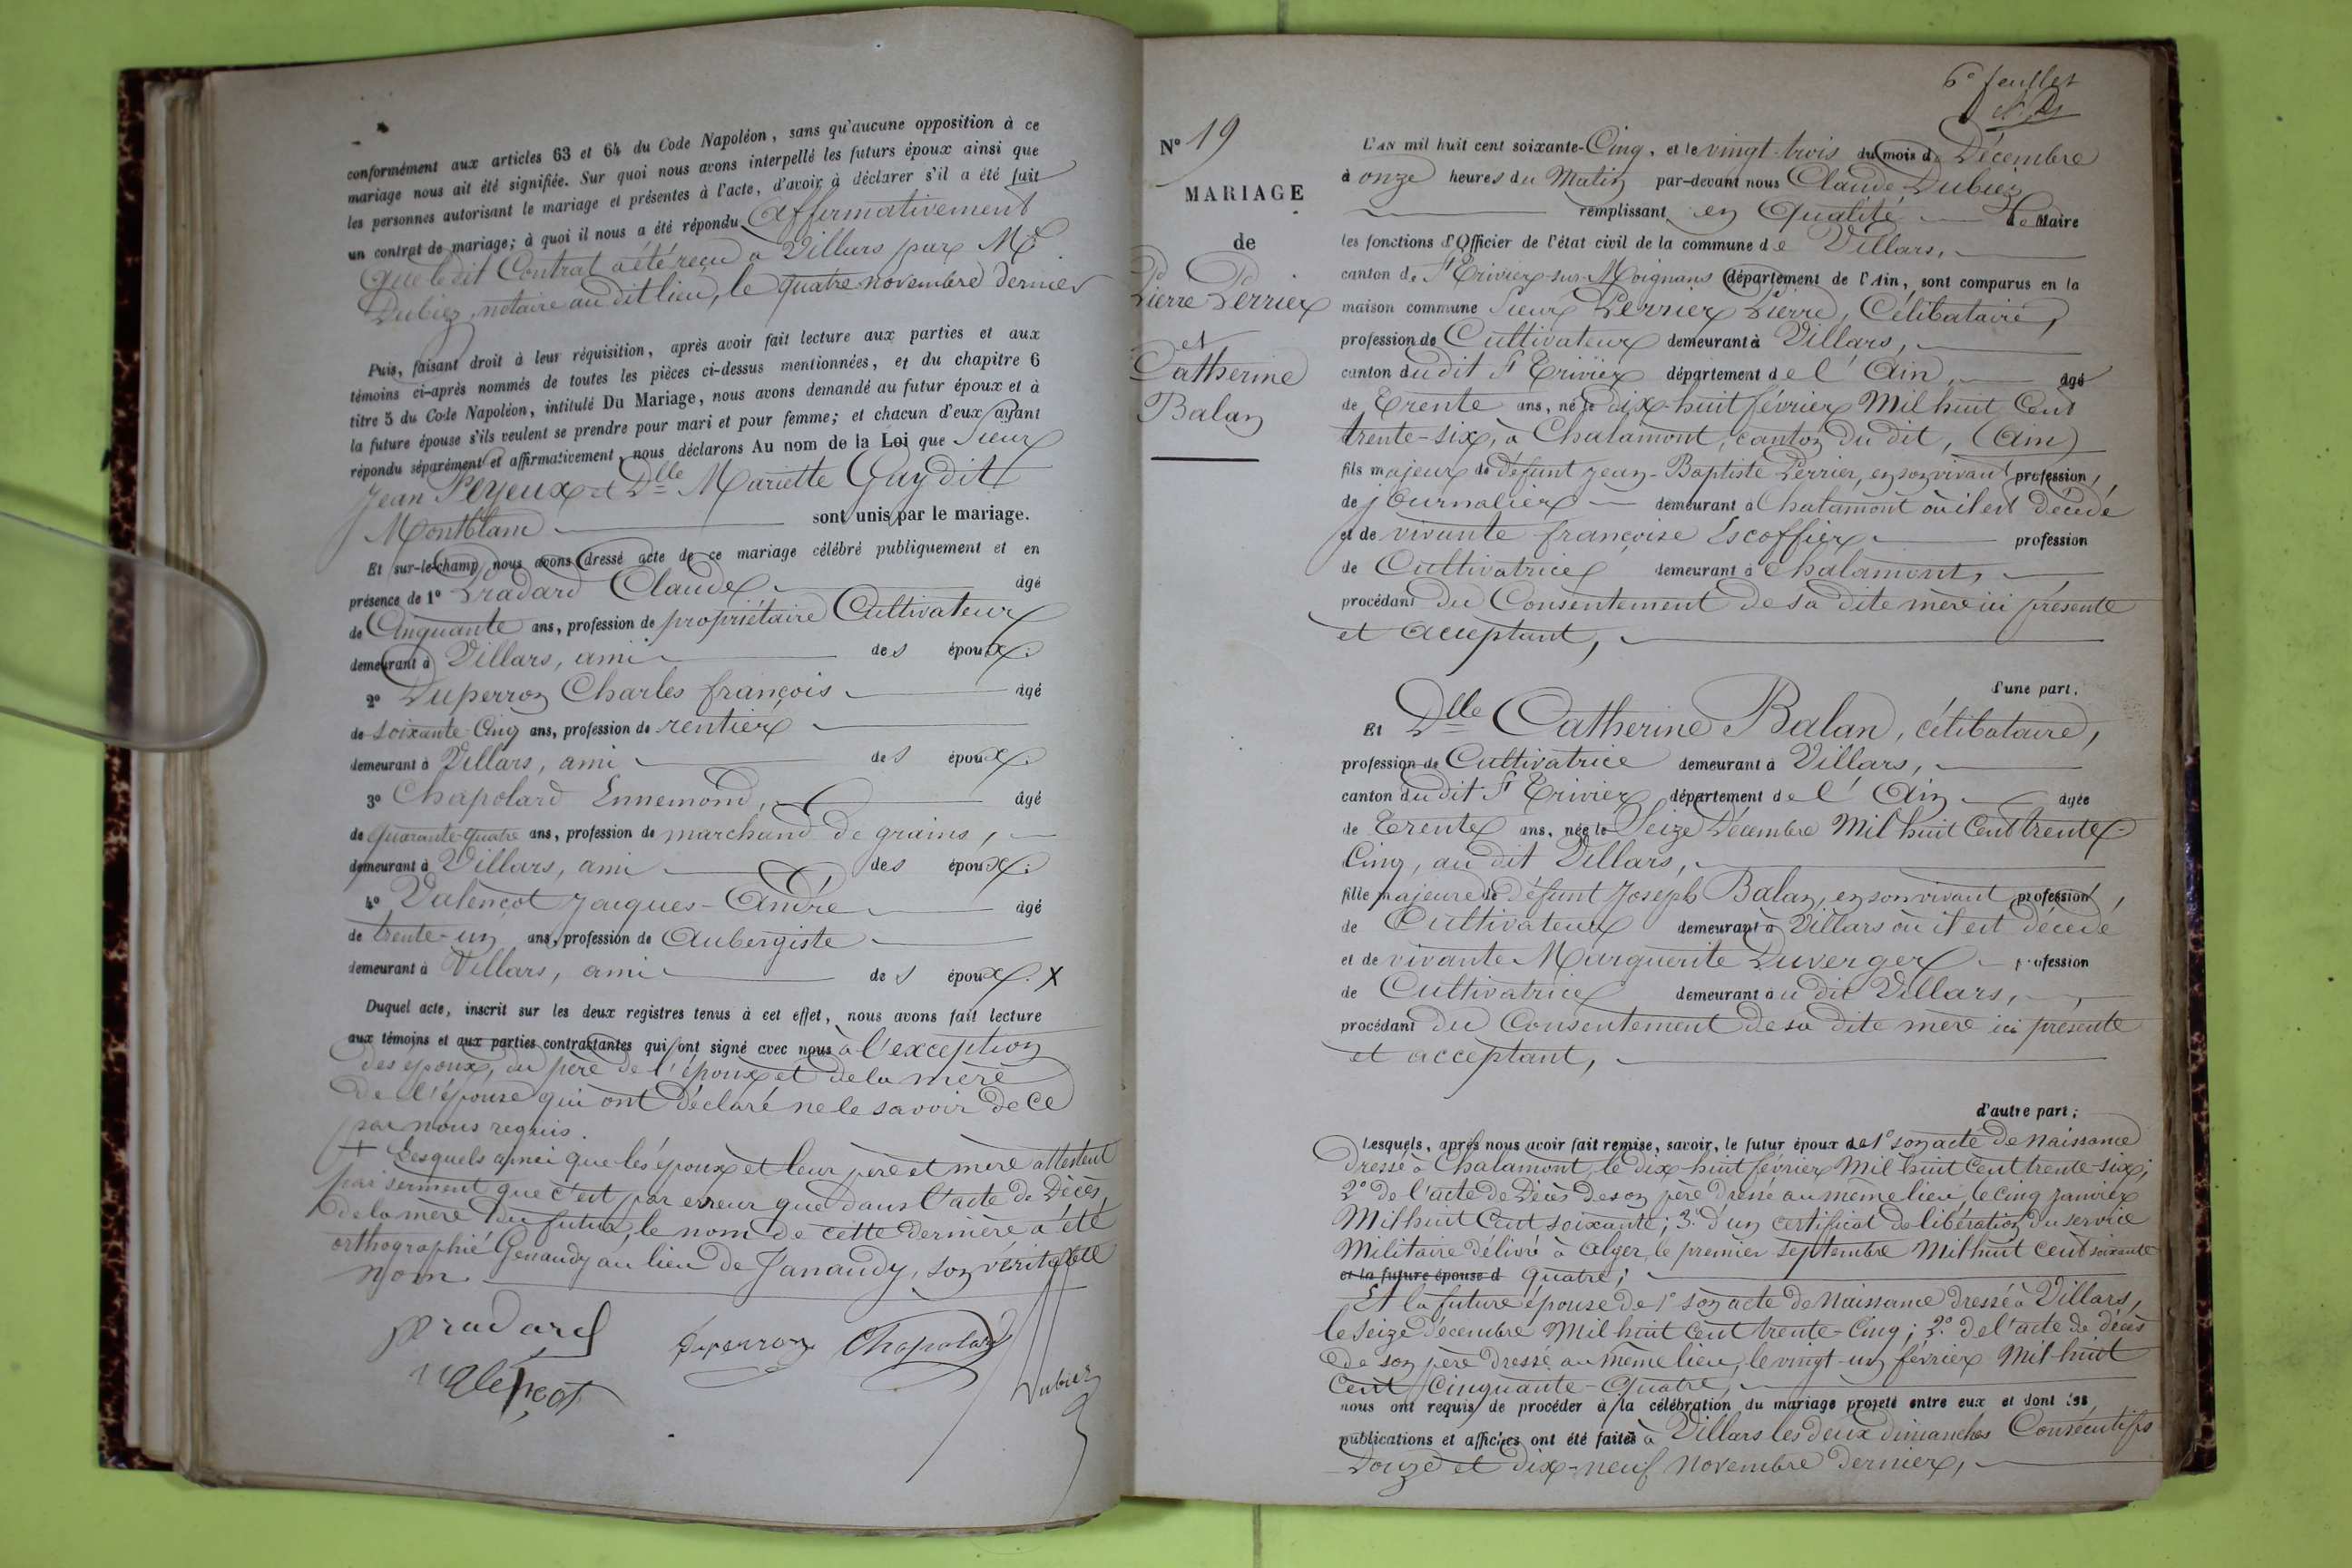 conformément aux articles 63 et 64 du Code Napoléon, sans qu'aucune opposition à ce
mariage nous ait été signifiée. Sur quoi nous avons interpellé les futurs époux ainsi que
les personnes autorisant le mariage et présentes à l'acte, d'avoir à déclarer s'il a été fait
un contrat de mariage; à quoi il nous a été répondu affirmativement
que le dit Contrat a été reçu à Villars par Me
Dubiez, notaire au dit lieu, le quatre novembre dernier
Puis, faisant droit à leur réquisition, après avoir fait lecture aux parties et aux
témoins ci-après nommés de toutes les pièces ci-dessus mentionnées, et du chapitre 6
titre 5 du Code Napoléon, intitulé Du Mariage, nous avons demandé au futur époux et à
la future épouse s'ils veulent se prendre pour mari et pour femme; et chacun d'eux ayant
répondu séparément et affirmativement, nous déclarons Au nom de la Loi que Sieur
Jean Peyeux et Dlle Mariette Guy dit
Montblanc sont unis par le mariage.
Et sur-le-champ nous avons dressé acte de ce mariage célébré publiquement et en
présence de 1° Pradard Claude âgé
de Cinquante ans, profession de propriétaire Cultivateur
demeurant à Villars, ami des époux.
2° Duperron Charles françois âgé
de soixante Cinq ans, profession de rentier
demeurant à Villars, ami des époux.
3° Chapolard Ennemond, âgé
de quarante-quatre ans, profession de marchand de grains,
demeurant à Villars, ami des époux.
4° Valençot Jacques-André âgé
de trente-un ans, profession de Aubergiste
demeurant à Villars, ami des époux. X
Duquel acte, inscrit sur les deux registres tenus à cet effet, nous avons fait lecture
aux témoins et aux parties contractantes qui ont signé avec nous à l'exception
des époux, du père de l'époux et de la mère
de l'épouse qui ont déclaré ne le savoir de ce
par nous requis.
+ Lesquels ainsi que les époux et leur père et mère attestent
par serment que c'est par erreur que dans l'acte de Décès
de la mère du futur, le nom de cette dernière a été
orthographié Genaudy au lieu de Janaudy, son véritable
nom.
Pradard Duperron Chapolard
Valençot Dubiez
6e feuillet
N° 19
MARIAGE
de
Pierre Perrier
et
Catherine
Balan
L'AN mil huit cent soixante-Cinq, et le vingt-trois du mois de Décembre
à onze heures du Matin par-devant nous Claude Dubiez
remplissant en qualité de Maire
les fonctions d'Officier de l'état civil de la commune de Villars,
canton de St Trivier-sur-Moignans département de l'Ain, sont comparus en la
maison commune Sieur Perrier Pierre, Célibataire,
profession de Cultivateur demeurant à Villars,
canton du dit St Trivier département de l'Ain, âgé
de Trente ans, né le dix-huit février Mil huit Cent
trente-six, à Chalamont, canton du dit, (Ain)
fils majeur de défunt Jean-Baptiste Perrier, en son vivant profession,
de journalier demeurant à Chalamont où il est décédé
et de vivante françoise Escoffier profession
de Cultivatrice demeurant à Chalamont,
procédant du Consentement de sa dite mère ici présente
et acceptant,
d'une part,
Et Dlle Catherine Balan, célibataire,
profession de Cultivatrice demeurant à Villars,
canton du dit St Trivier département de l'Ain âgée
de Trente ans, née le Seize Décembre Mil huit Cent trente-
Cinq, au dit Villars,
fille majeure de défunt Joseph Balan, en son vivant profession,
de Cultivateur demeurant à Villars où il est décédé
et de vivante Marguerite Duverger profession
de Cultivatrice demeurant au dit Villars,
procédant du Consentement de sa dite mère ici présente
et acceptant,
d'autre part;
Lesquels, après nous avoir fait remise, savoir, le futur époux de 1° son acte de Naissance
dressé à Chalamont, le dix-huit février Mil huit Cent trente-six;
2° de l'acte de Décès de son père dressé au même lieu, le cinq Janvier
Mil huit Cent soixante; 3° d'un certificat de libération du service
Militaire délivré à Alger, le premier septembre Mil huit cent soixante
et la future épouse d quatre;
Et la future épouse de 1° son acte de Naissance dressé à Villars,
le seize décembre Mil huit Cent trente-Cinq; 2° de l'acte de décès
de son père dressé au même lieu, le vingt-un février Mil huit
Cent Cinquante-Quatre,
nous ont requis de procéder à la célébration du mariage projeté entre eux et dont les
publications et affiches ont été faites à Villars les deux dimanches Consécutifs
Douze et dix-neuf novembre dernier,